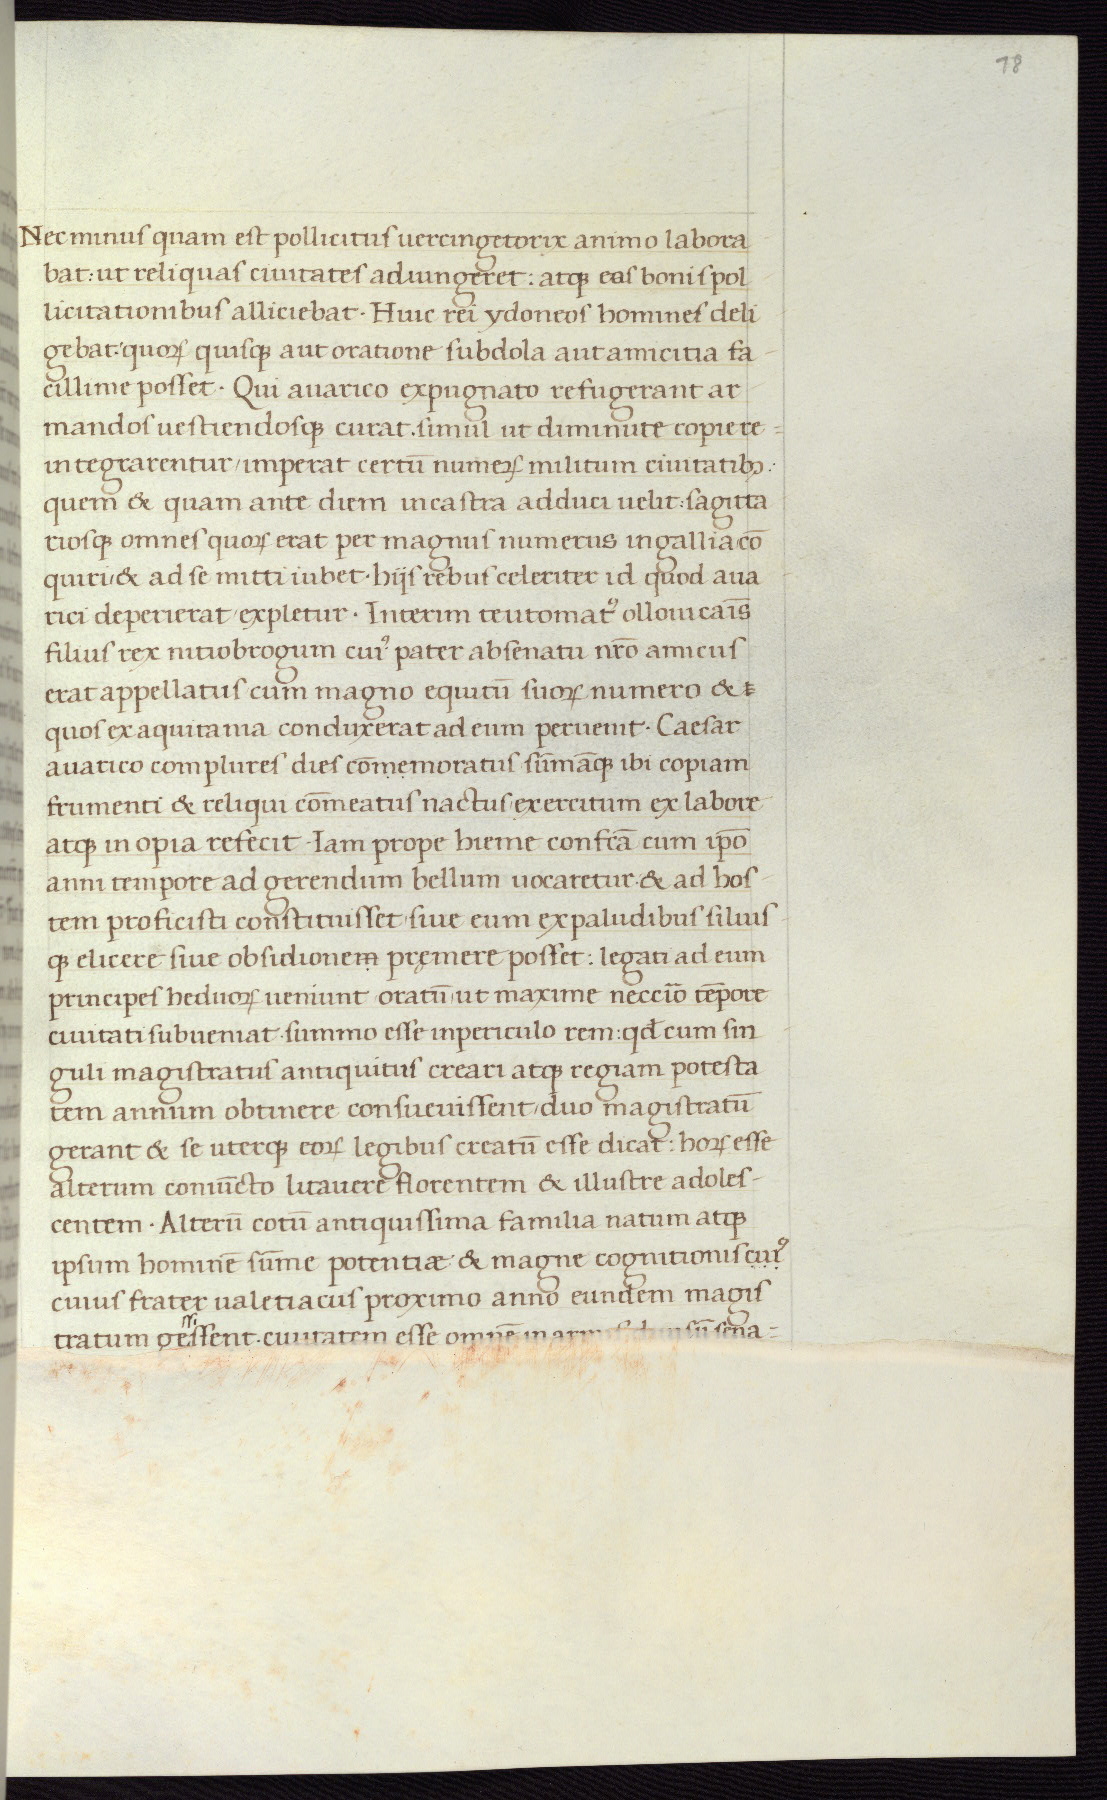 78
Nec minus quam est pollicitus uercingetorix animo labora
bat: ut reliquas ciuitates adiungeret: atq; eas bonis pol
licitationibus alliciebat. Huic rei ydoneos homines deli
gebat: quoꝝ quisq; aut oratione subdola aut amicitia fa-
cillime posset. Qui auarico expugnato refugerant ar
mandos uestiendosq; curat. simul ut diminute copie re=
integrarentur, imperat certū numeꝝ militum ciuitatibꝫ:
quem & quam ante diem in castra adduci uelit: sagitta
riosq; omnes quoꝝ erat per magnus numerus in gallia cō
quiri, & ad se mitti iubet. hijs rebus celeriter id quod aua
rici deperierat, expletur. Interim teutomatꝰ olloui cais̄
filius rex nitiobrogum cuiꝰ pater absenatu nr̄o amicus
erat appellatus cum magno equitū suoꝝ numero &
quos ex aquitania conduxerat ad eum peruenit. Caesar
auarico complures dies cōmemoratus sūmāq; ibi copiam
frumenti & reliqui cōmeatus nactus, exercitum ex labore
atq; in opia refecit. Iam prope hieme confcā cum ip̄o
anni tempore ad gerendum bellum uocaretur. & ad hos-
tem proficisci constituisset, siue eum ex paludibus siluis
q; elicere siue obsidionem premere posset: legati ad eum
principes heduoꝝ ueniunt oratū, ut maxime necc̄io tēpore
ciuitati subueniat. summo esse inpericulo rem: qđ cum sin
guli magistratus antiquitus creari atq; regiam potesta
tem annum obtinere consueuissent, duo magistratū
gerant & se uterq; eoꝝ legibus creatū esse dicat: hoꝝ esse
alterum coniūcto litauere florentem & illustre adoles-
centem. Alterū cotū antiquissima familia natum atq;
ipsum hominē sūme potentiæ & magne cognitionis cuiꝰ
cuius frater ualetiacus proximo anno eundem magis
tratum gessent. ciuitatem esse omnē in armis. diuisū sena=